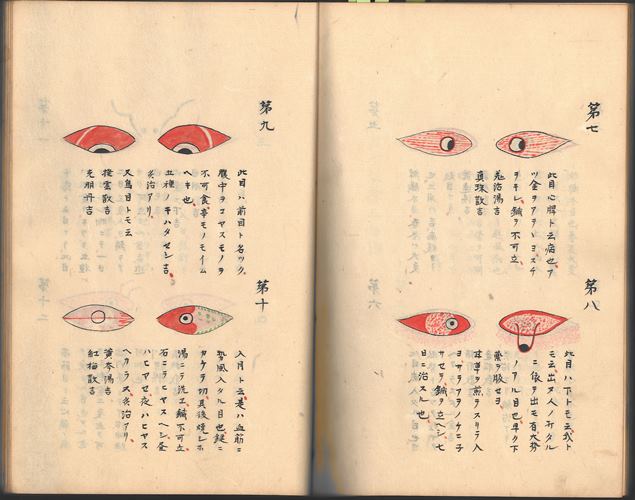 第七
此目心脾ト云病也ア
ツ金ヲアテヽヨスチ
ヲキレ鍼ヲ不可立
湯吉
真珠散吉
第八
此目ハ下トモ云我ト
モ云出ヌ人ノ打タル
ニ依ヲ出モ有大方
ノワル目也早ク下
薬ヲ服セヨ
ヲスリテ入
サセヲ鍼ヲ立ヘシ七
日ニ治スル也
第九
此目ハ前目ト名ツク
腹中ヲコヤスモノヲ
不可食事モノモイム
ヘキ也
五種ノキハタセシ吉
灸治アリ
又鳥目トモ云
雲散吉
光明丹吉
第十
入月ト云是ハ血筋ニ
風入タル目也
カケヲ切其後焼シホ
湯ニテ洗エ鍼不可立
石ニテヒヤスヘシ昼
ハヒヤセ夜ハヒヤス
ヘカラス灸治アリ
黄芩湯吉
紅梅散吉